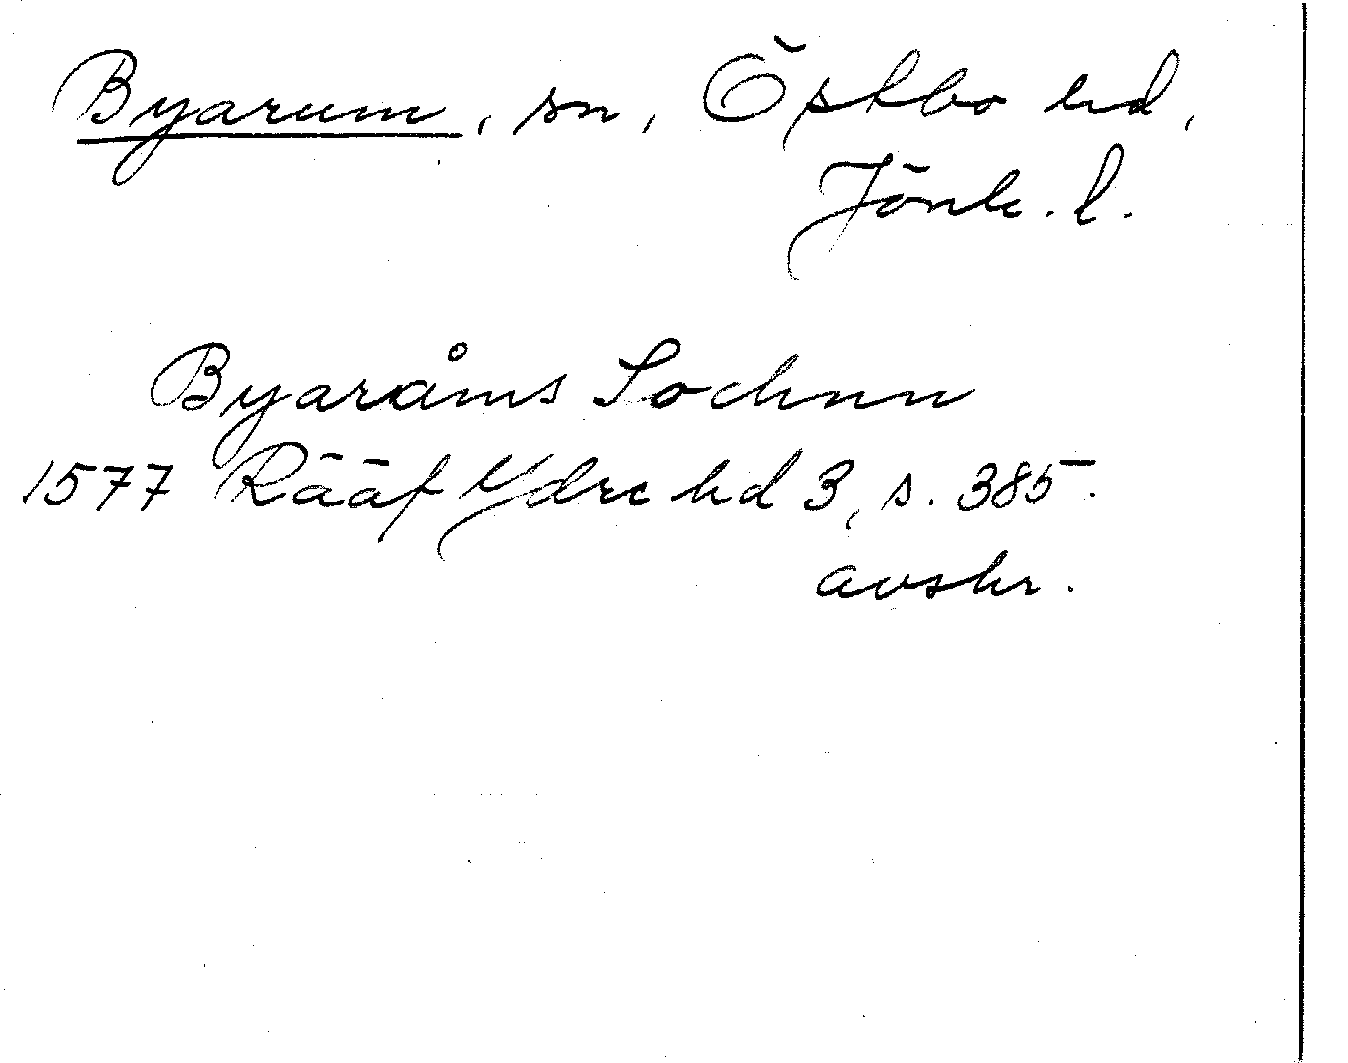 Byarum, sn, Östbo hd,
Jönk. l.
Byaråms Sochnn
1577 Rääf Ydre hd 3, s. 385.
avskr.